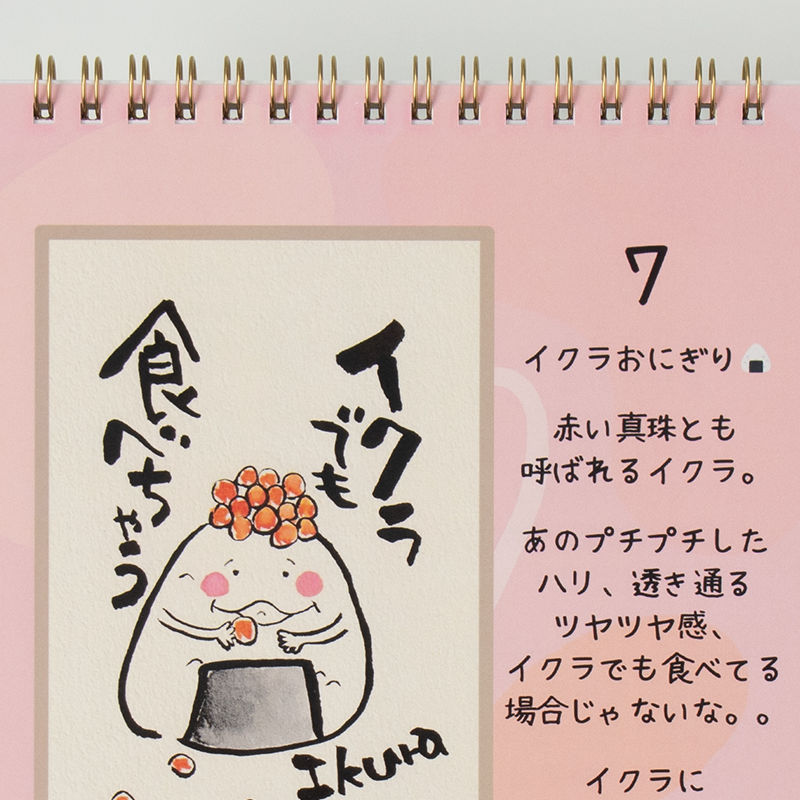 イクラ
でも
食べちゃう
Ikura
7
イクラおにぎり
赤い真珠とも
呼ばれるイクラ。
あのプチプチした
ハリ、透き通る
ツヤツヤ感、
イクラでも食べてる
場合じゃないな。。
イクラに